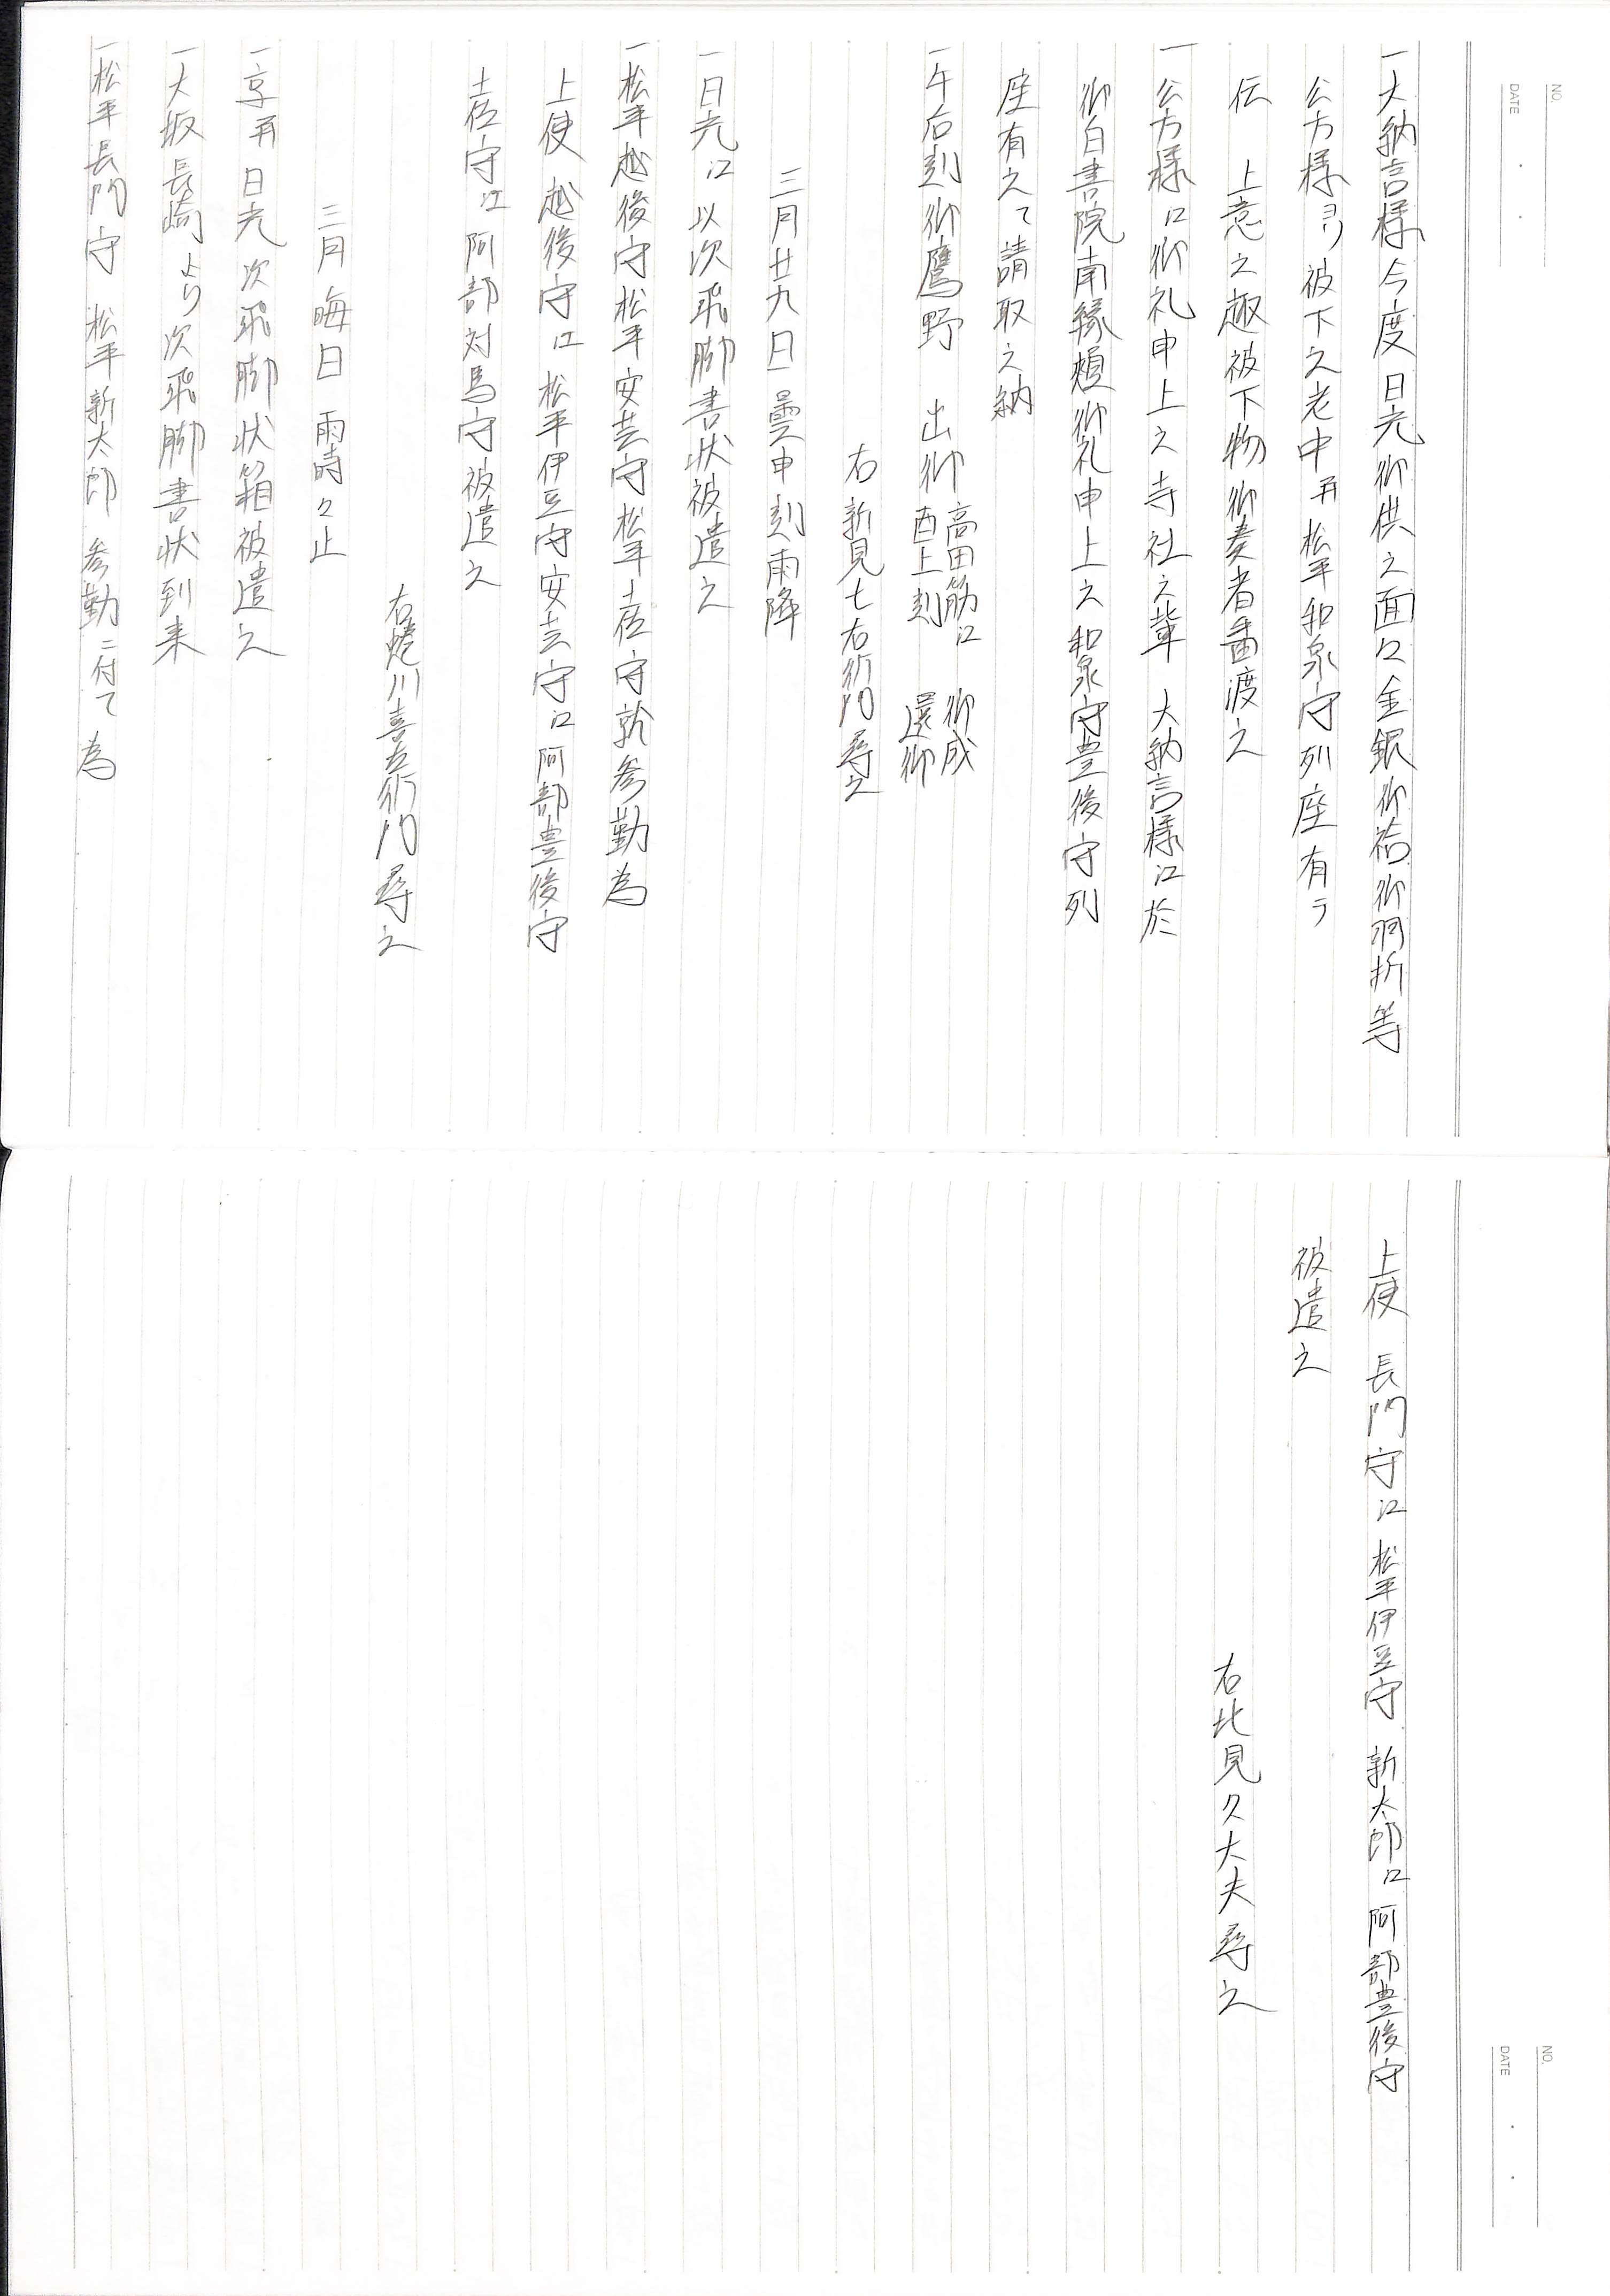 一大納言様今度日光御供之面々金銀御袷御羽折等
公方様ヨリ被下之老中并松平和泉守列座有テ
伝　上意之趣被下物御奏者番渡之
一公方様江御礼申上之寺社之輩　大納言様江於
御白書院南縁頬御礼申上之和泉守豊後守列
座有之て請取之納
一午后刻御鷹野　出御　高田筋江　御成
酉上刻　還御
右新見七右衛門尋之
三月廿九日　曇申刻雨降
一日光江以次飛脚書状被遣之
一松平越後守松平安芸守松平土佐守就参勤為
上使　越後守江　松平伊豆守安芸守江阿部豊後守
土佐守江　阿部対馬守被遣之
右蜷川喜左衛門尋之
三月晦日　雨時々止
一京并日光次飛脚状箱被遣之
一大坂長崎より次飛脚書状到来
一松平長門守　松平新太郎　参勤ニ付て　為
NO.
DATE
上使　長門守江　松平伊豆守　新太郎江　阿部豊後守
被遣之
右北見久大夫尋之
NO.
DATE